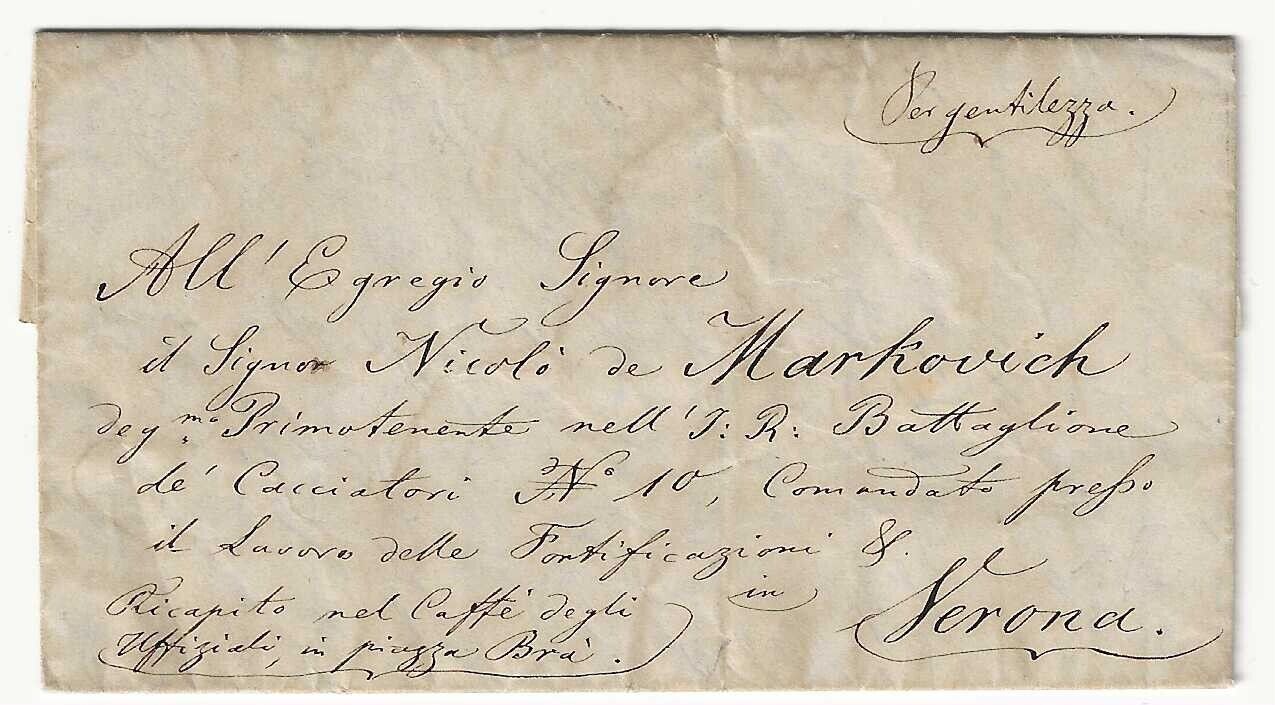 Per gentilezza.
All' Egregio Signore
il Signor Nicolò de Markovich
degmo Primotenente nell' I: R: Battaglione
de' Cacciatori No 10, Comandato presso
il Lavoro delle Fortificazioni &.
in Verona.
Ricapito nel Caffè degli
Uffiziali, in piazza Brà.